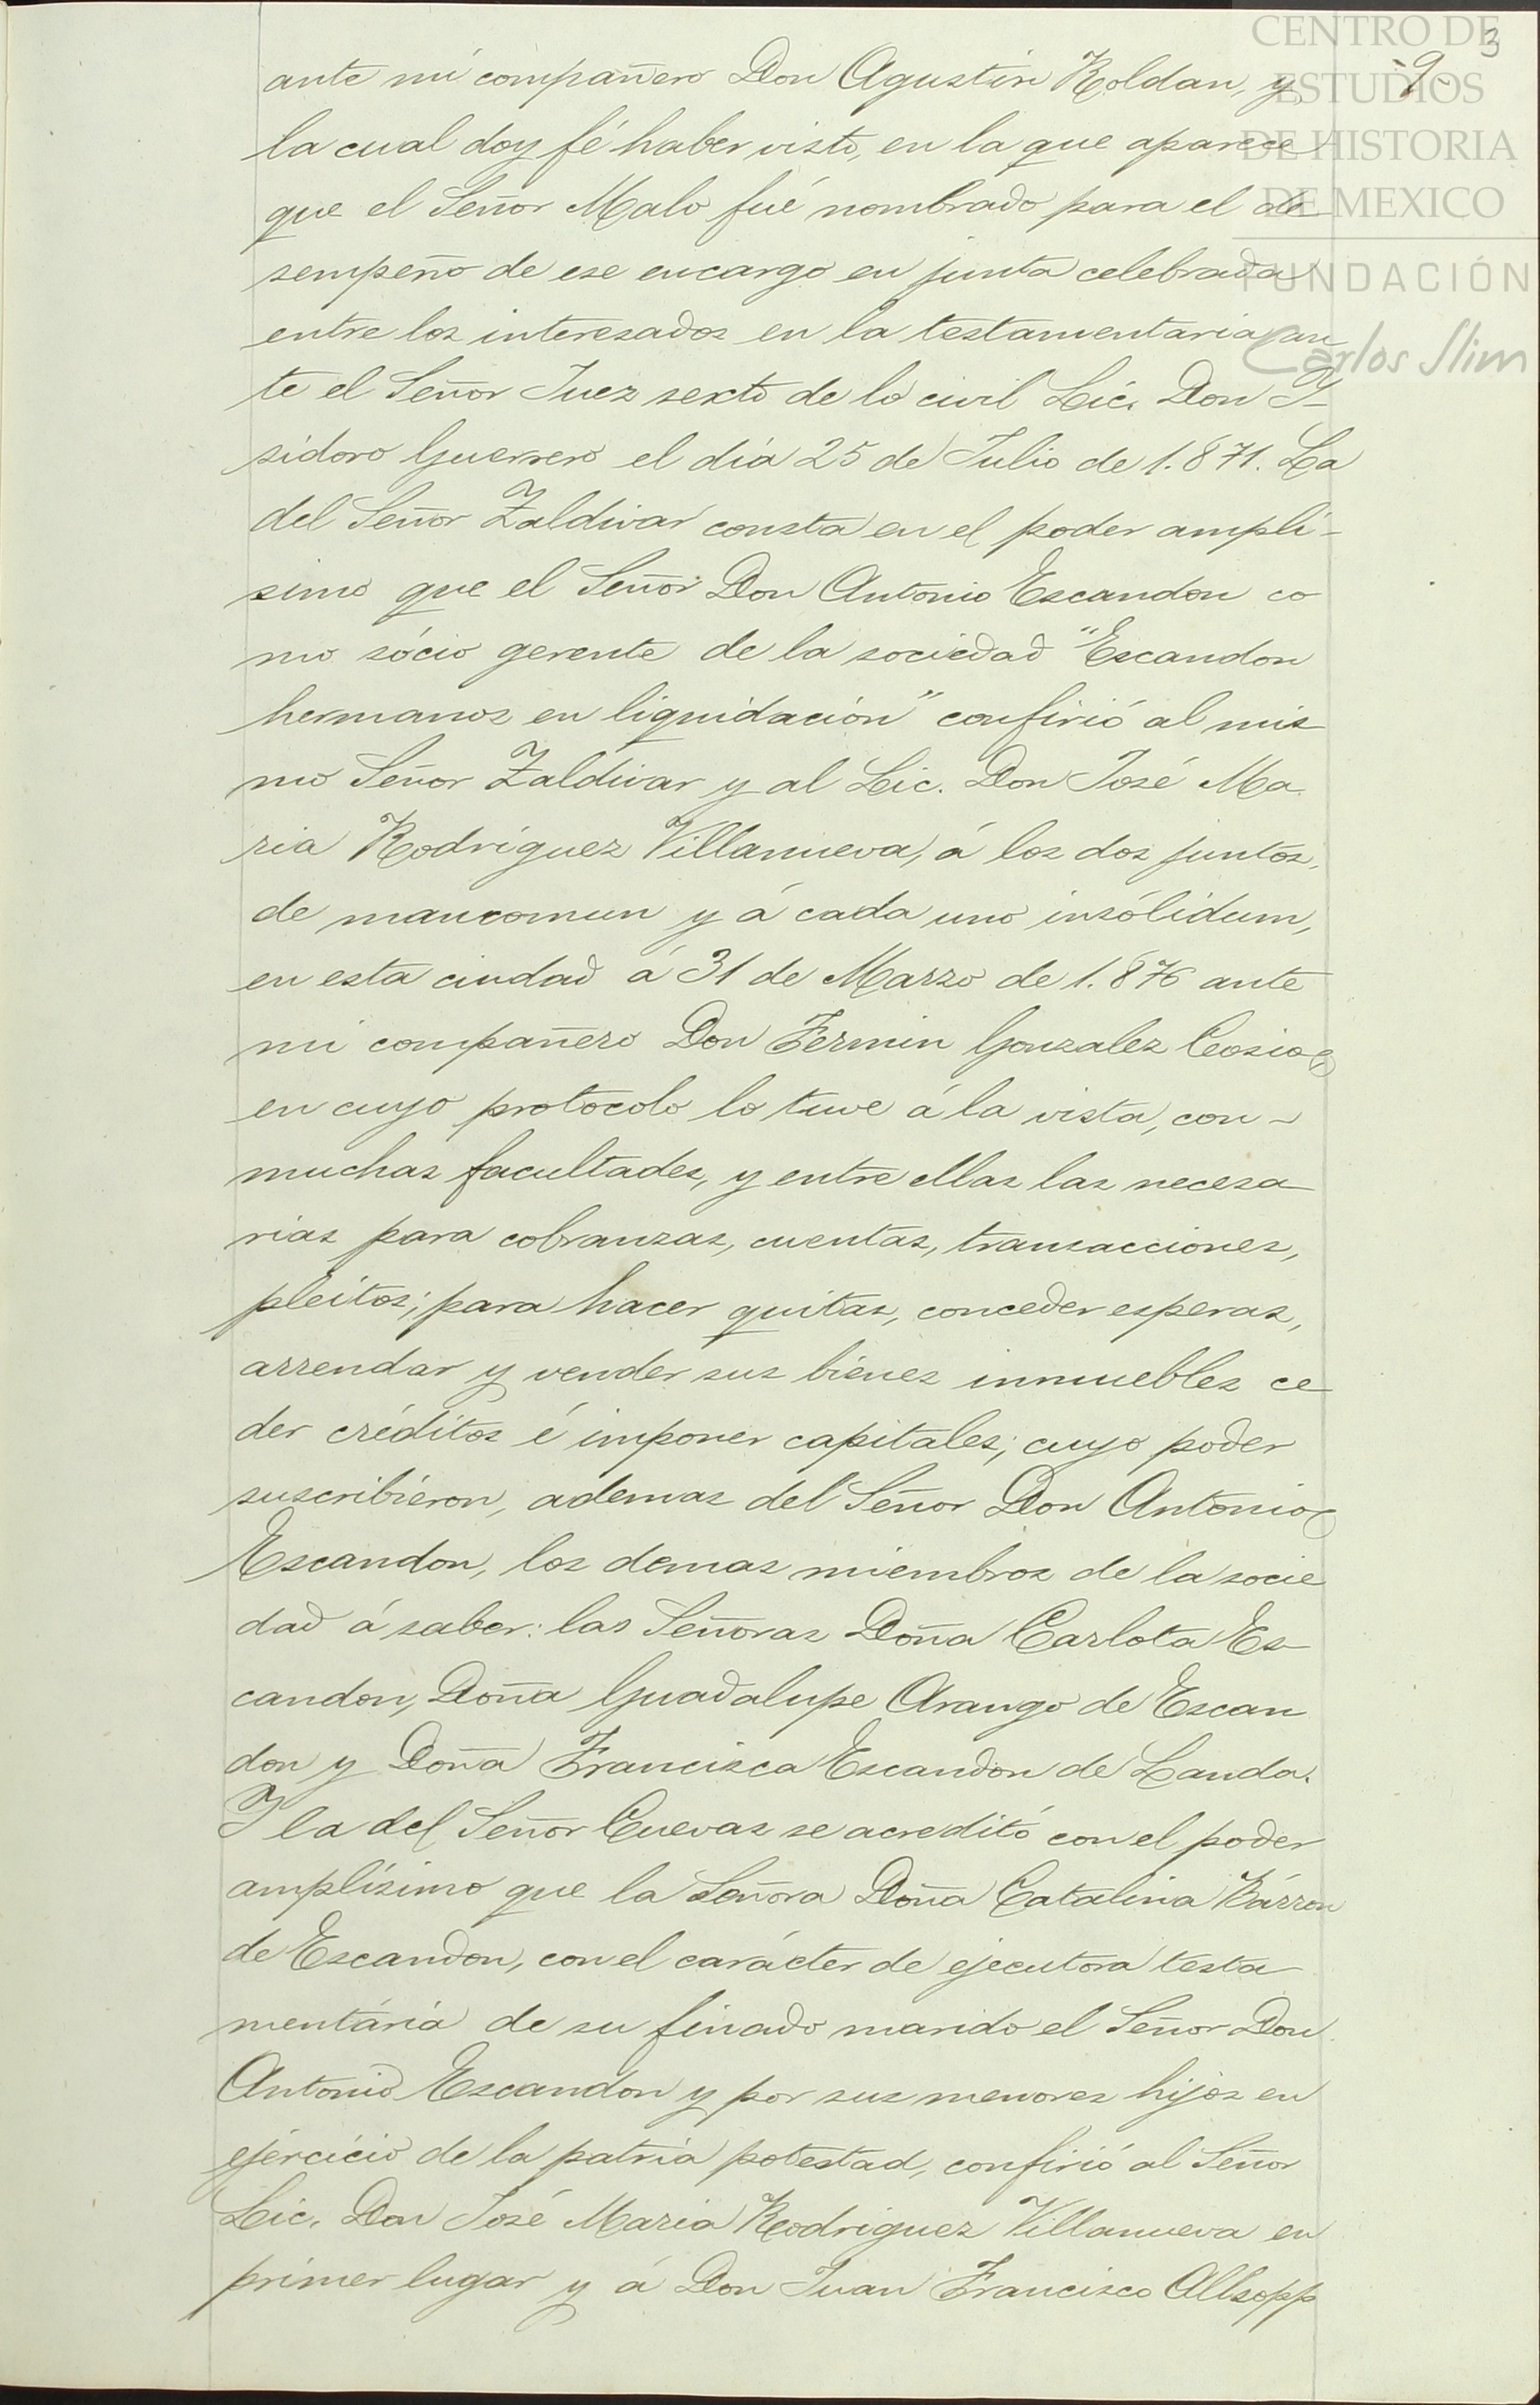 CENTRO DE
ESTUDIOS
DE HISTORIA
DE MEXICO
FUNDACIÓN
Carlos Slim
3
-9-
ante mi compañero Don Agustin Roldan, y
la cual doy fé haber visto, en la que aparece
que el Señor Malo fué nombrado para el de
sempeño de ese encargo en junta celebrada
entre los interesados en la testamentaria an
te el Señor Juez sexto de lo civil Lic. Don Y-
sidoro Guerrero el dia 25 de Julio de 1.871. La
del Señor Zaldivar consta en el poder amplí-
simo que el Señor Don Antonio Escandon co
mo sócio gerente de la sociedad "Escandon
hermanos en liquidación" confirió al mis
mo Señor Zaldivar y al Lic. Don José Ma.
ria Rodriguez Villanueva, á los dos juntos,
de mancomun y á cada uno insólidum,
en esta ciudad á 31 de Marzo de 1.876 ante
mi compañero Don Fermin Gonzalez Cosio,
en cuyo protocolo lo tuve á la vista, con-
muchas facultades, y entre ellas las necesa
rias para cobranzas, cuentas, transacciones,
pleitos; para hacer quitas, conceder esperas,
arrendar y vender sus bienes inmuebles ce
der créditos é imponer capitales; cuyo poder
suscribieron, ademas del Señor Don Antonio
Escandon, los demas miembros de la socie
dad á saber: las Señoras Doña Carlota Es-
candon, Doña Guadalupe Arango de Escan
don y Doña Francisca Escandon de Landa.
Y la del Señor Cuevas se acreditó con el poder
amplísimo que la Señora Doña Catalina Bárron
de Escandon, con el carácter de ejecutora testa
mentária de su finado marido el Señor Don
Antonio Escandon y por sus menores hijos en
ejercicio de la patria potestad, confirió al Señor
Lic. Don José Maria Rodriguez Villanueva en
primer lugar y á Don Juan Francisco Allsopp